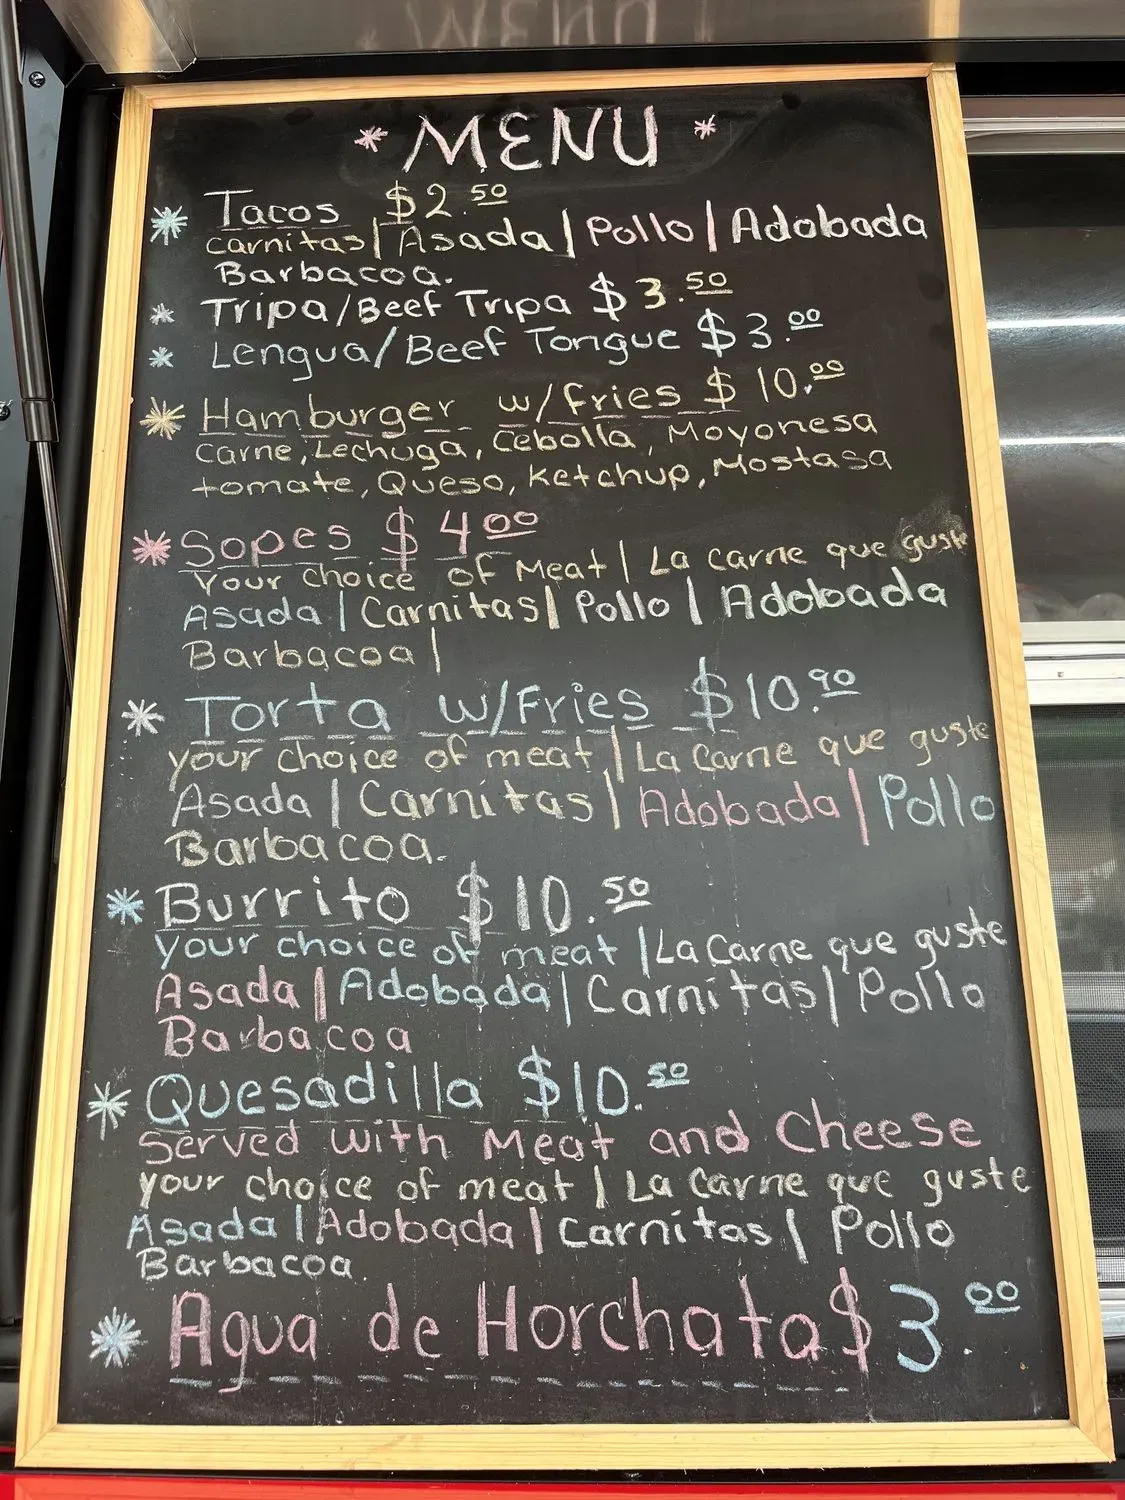 * MENU *
* Tacos $2.50
carnitas | Asada | Pollo | Adobada
Barbacoa.
* Tripa/Beef Tripa $3.50
* Lengua/Beef Tongue $3.00
* Hamburger w/fries $10.00
carne, Lechuga, Cebolla, Moyonesa
tomate, Queso, Ketchup, Mostasa
* Sopes $4.00
Your choice of Meat | La carne que guste
Asada | Carnitas | Pollo | Adobada
Barbacoa |
* Torta w/Fries $10.90
your choice of meat | La Carne que guste
Asada | Carnitas | Adobada | Pollo
Barbacoa.
* Burrito $10.50
your choice of meat | La Carne que guste
Asada | Adobada | Carnitas | Pollo
Barbacoa
* Quesadilla $10.50
Served with Meat and Cheese
your choice of meat | La Carne que guste
Asada | Adobada | Carnitas | Pollo
Barbacoa.
* Agua de Horchata $3.00